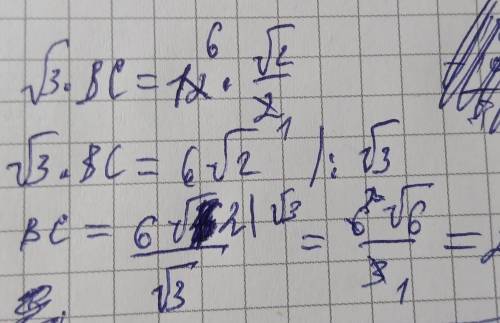 √3 · BC = 12 6 · √2/2 1
√3 · BC = 6√2 | : √3
BC = 6√2 | √3 / √3 = 6 2 √6 / 3 1 =